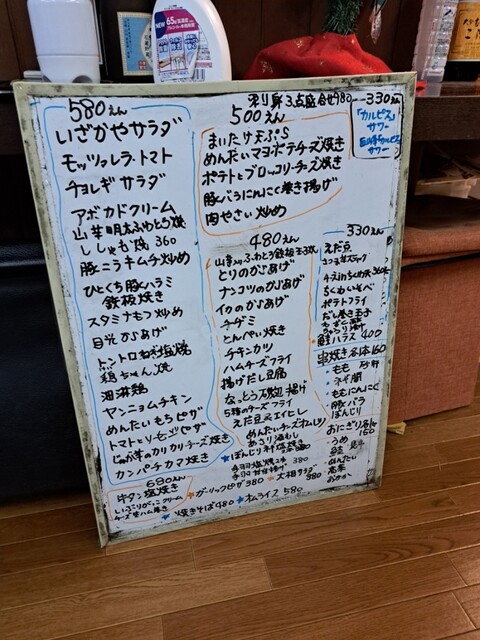 580えん
いざかやサラダ
モッツァレラ・トマト
チョレギサラダ
アボカドクリーム
山芋明太ふわとろ焼
ししゃも焼 360
豚ニラキムチ炒め
ひとくち豚ハラミ
鉄板焼き
スタミナもつ炒め
目光からあげ
トントロねぎ塩焼
鶏ちゃん焼
油淋鶏
ヤンニョムチキン
めんたいもちピザ
トマトとソーセージピザ
じゃが芋のカリカリチーズ焼き
カンパチカマ焼き
680えん
牛タン塩焼き
いぶりがっこクリーム
チーズ生ハム巻き
刺身3点盛合せ980
500えん
まいたけ天ぷら
めんたいマヨポテチーズ焼き
ポテトとブロッコリーチーズ焼き
豚バラにんにく巻き揚げ
肉やさい炒め
480えん
山芋ふわとろ鉄板玉子焼
とりのからあげ
ナンコツのからあげ
イカのからあげ
チヂミ
とんぺい焼き
チキンカツ
ハムチーズフライ
揚げだし豆腐
なっとう磯辺揚げ
5種のチーズフライ
えだ豆エイヒレ
めんたいチーズオムレツ
あさり酒むし
★ガーリックピザ380
★大根サラダ380
★焼きそば480
★オムライス580
330えん
「カルピス」
サワー
巨峰カルピス
サワー
330えん
えだ豆
ポテトフライ
だし巻き玉子
鮭ハラス 400
串焼き各1本160
・もも
・ねぎ間
・ももにんにく
・豚バラ
・ぼんじり
おにぎり各1ケ
150
・うめ
・鮭
・めんたい
・昆布
・おかか